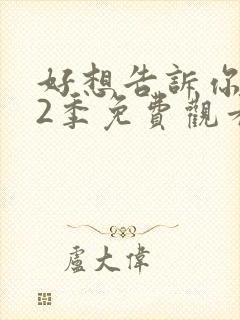 好想告訴你
2季免費觀
盧大偉